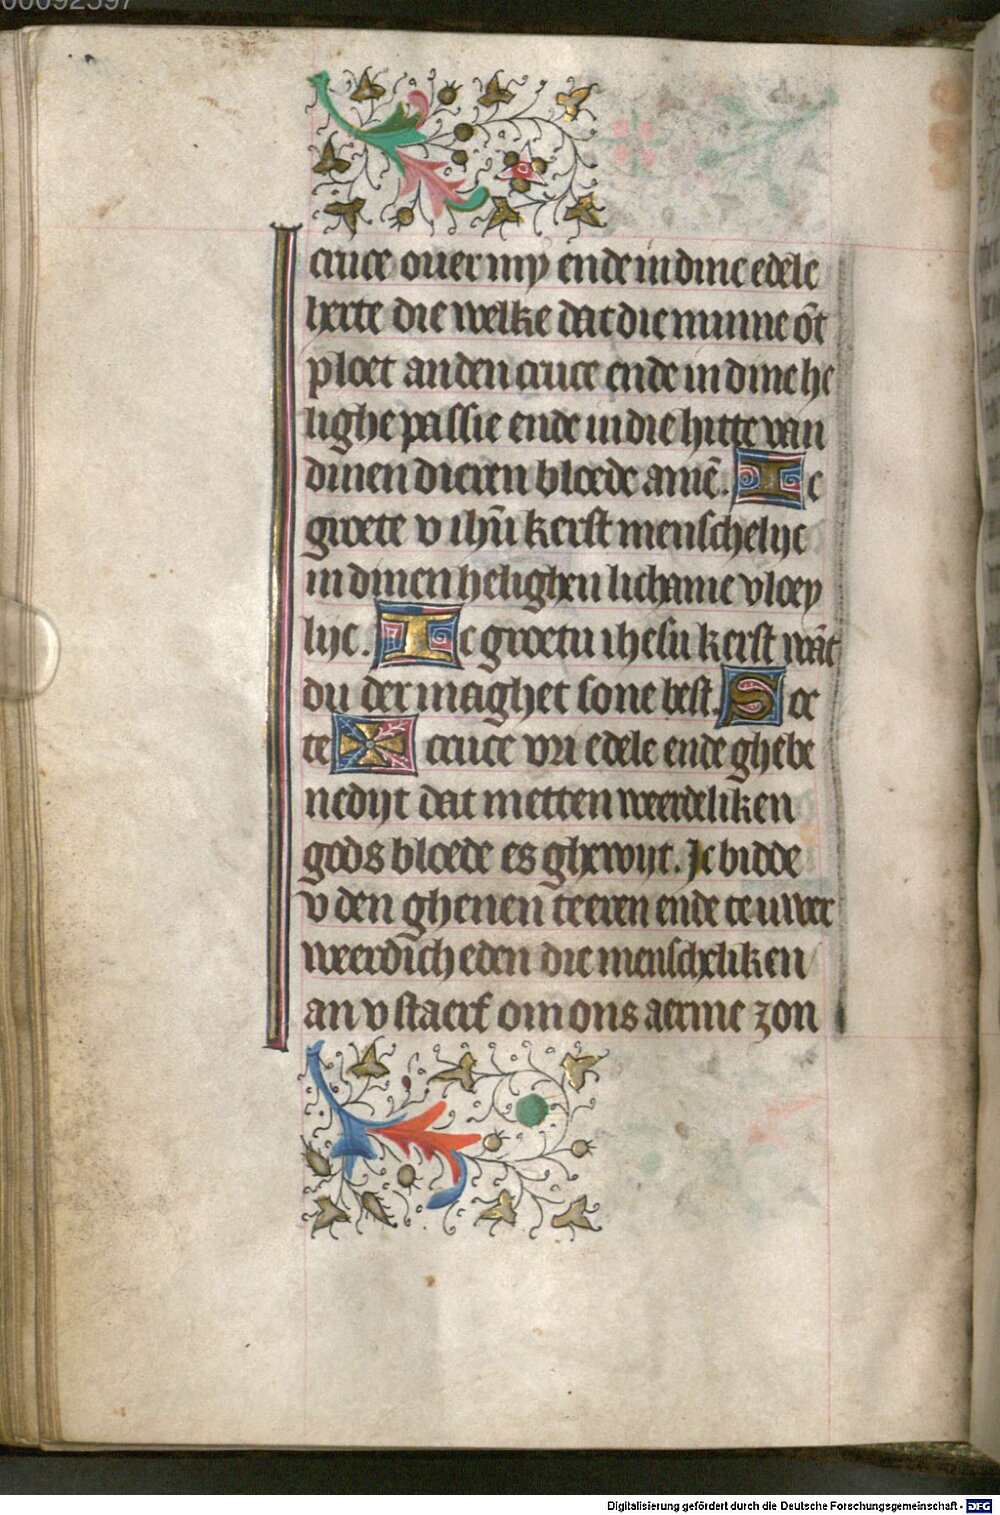 cruce ouer my ende in dine edele
herte die welke dat die minne ōt
ploet an den cruce ende in dine he
lighe passie ende in die hitte van
dinen dieren bloede amē. Ic
groete v ihū kerst menschelijc
in dinen helighen lichame vloey
lijc. Ic groetu ihesu kerst wāt
du der maghet sone best. Soe
te X cruce vri edele ende ghebe
nedijt dat metten weerdeliken
gods bloede es ghewijt. Ic bidde
v den ghenen teeren ende te uwer
weerdicheden die menscheliken
an v staerf om ons aerme zon
Digitalisierung gefördert durch die Deutsche Forschungsgemeinschaft - DFG